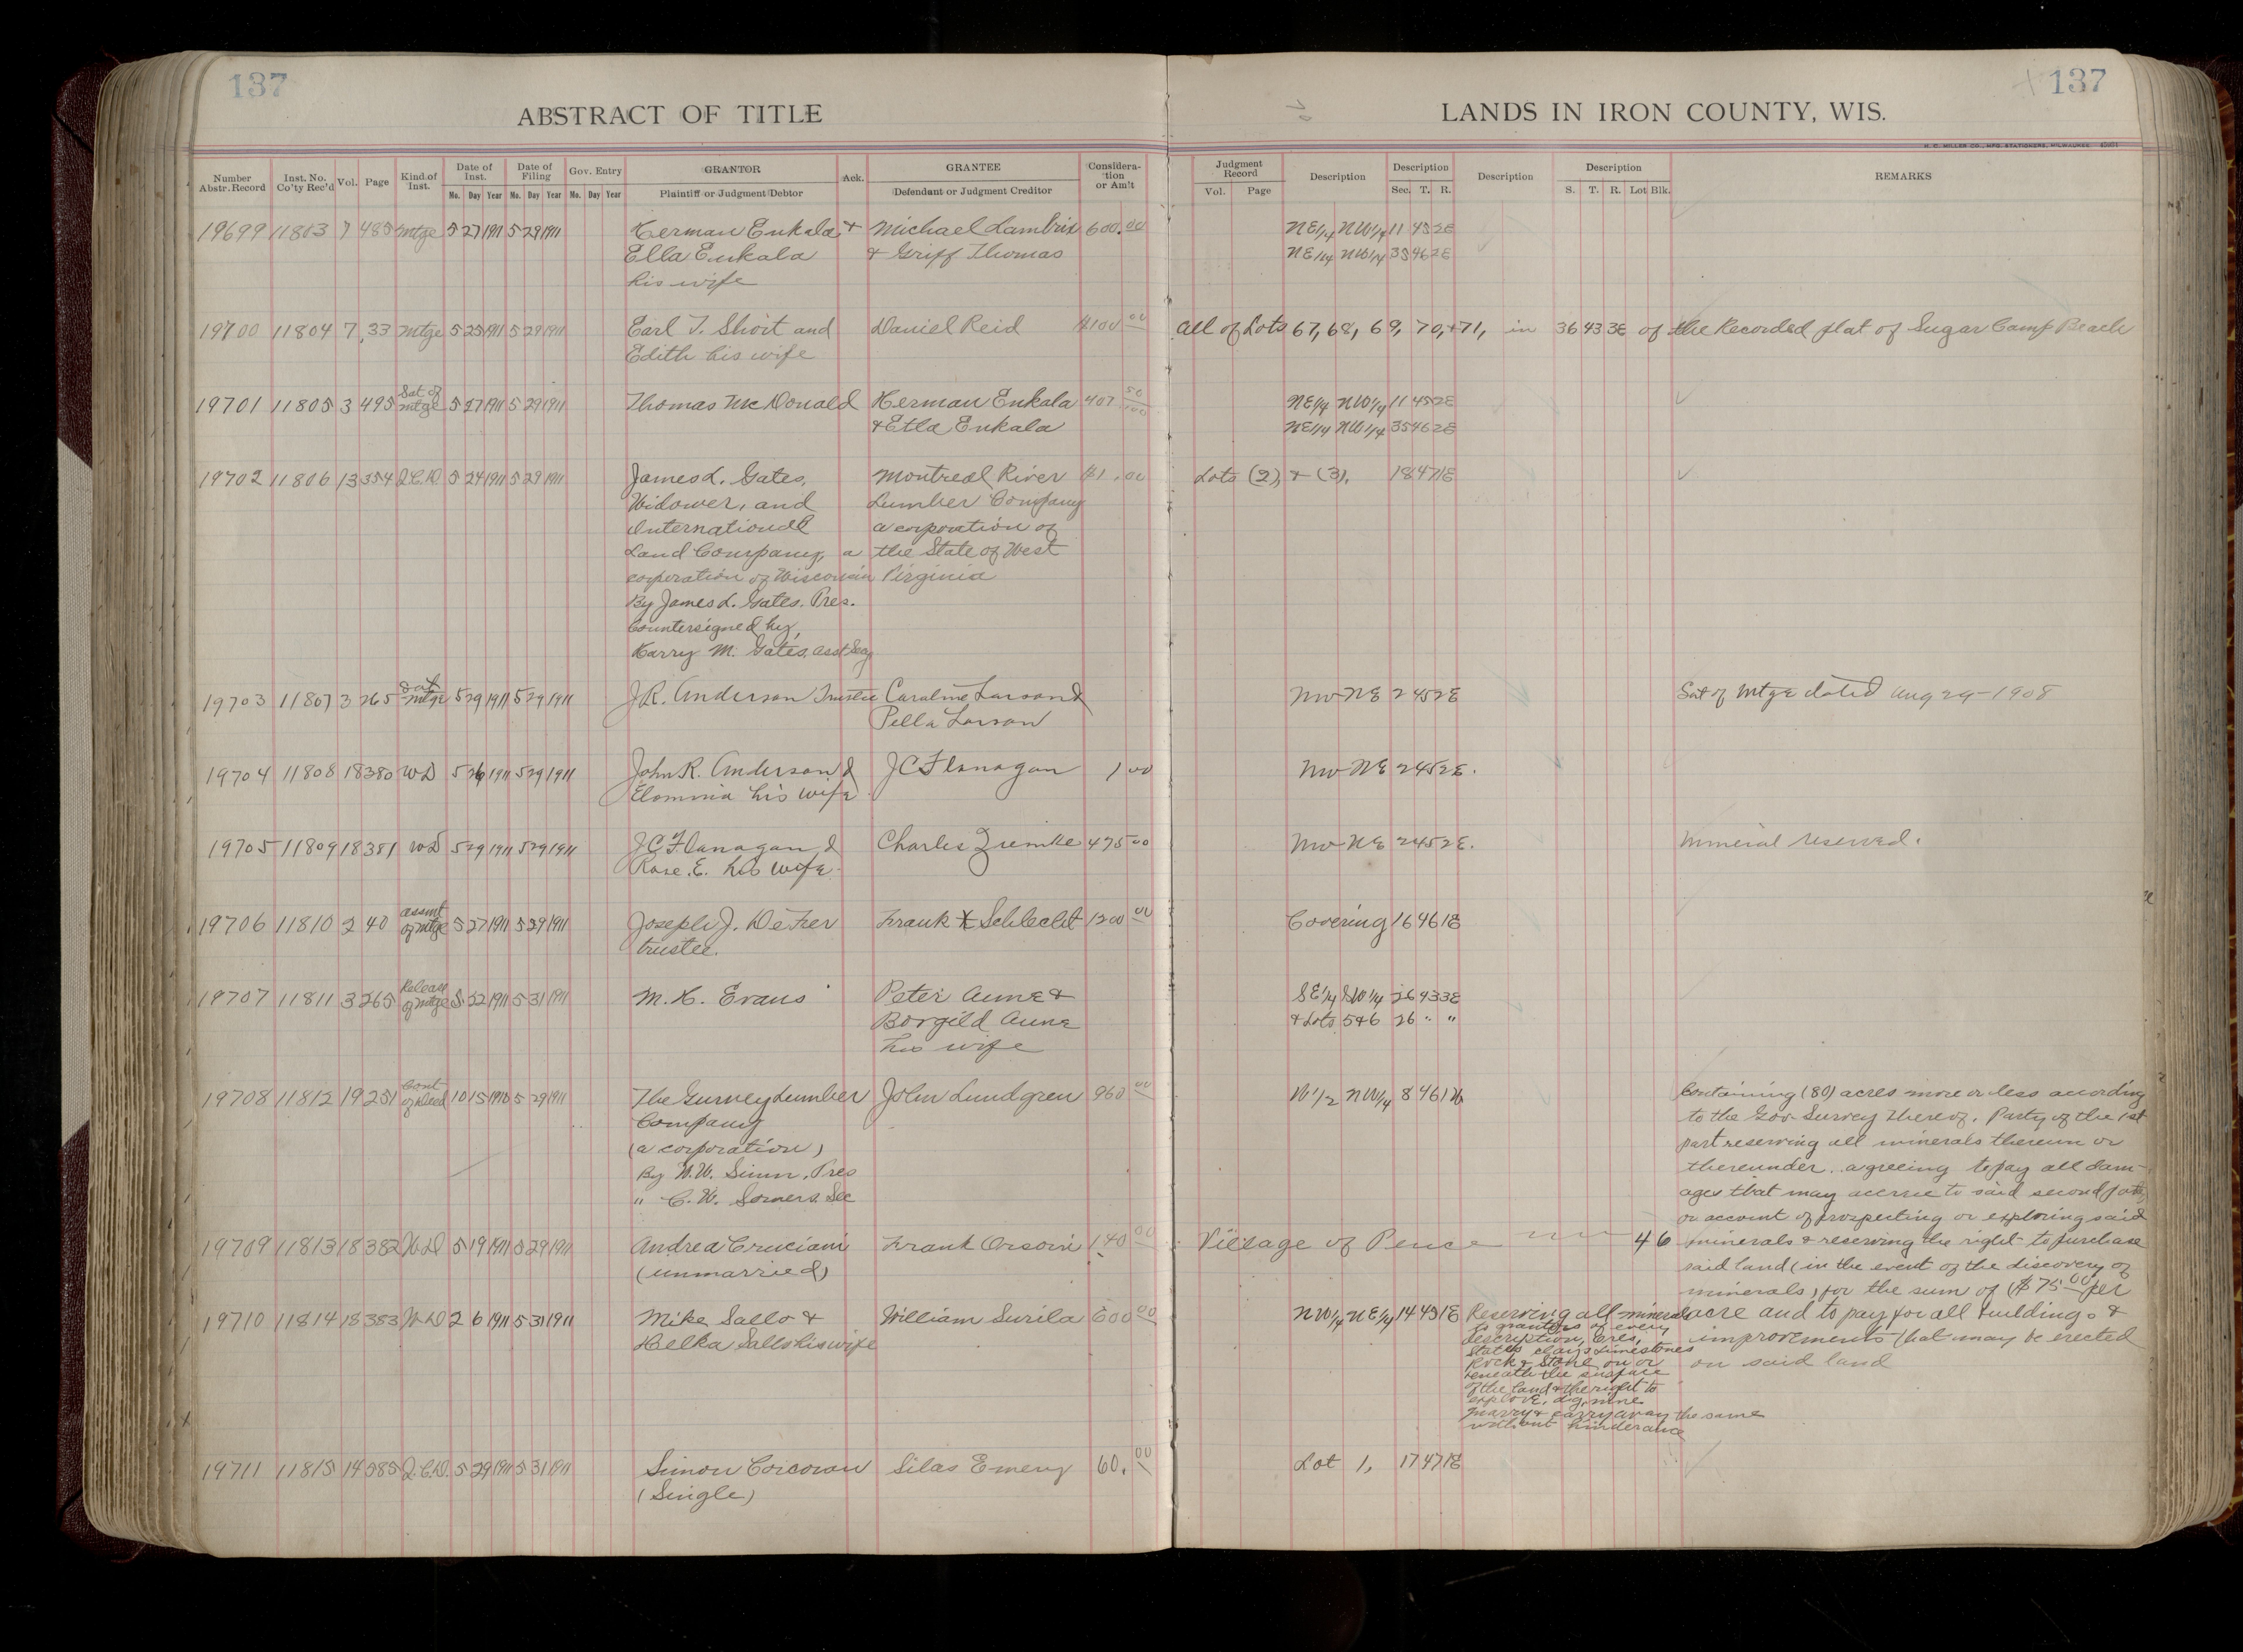 137
137
ABSTRACT OF TITLE
LANDS IN IRON COUNTY, WIS.
H. C. MILLER CO., MFG. STATIONERS, MILWAUKEE
Number Abstr. Record | Inst. No. Co'ty Rec'd | Vol. | Page | Kind of Inst. | Date of Inst. | Date of Filing | Gov. Entry | GRANTOR | Ack. | GRANTEE | Considera-tion or Am't | Judgment Record | Description | Description | Description | Description | REMARKS
Mo. Day Year | Mo. Day Year | Mo. Day Year | Plaintiff or Judgment Debtor | Defendant or Judgment Creditor | Vol. Page | Sec. T. R. | S. T. R. Lot Blk.
19699 11803 7 485 Mtge 5 27 1911 5 29 1911 Herman Enkala & Michael Lambrix 600.00 NE1/4 NW1/4 11 45 2E
Ella Enkala & Griff Thomas NE1/4 NW1/4 35 46 2E
his wife
19700 11804 7 33 Mtge 5 25 1911 5 29 1911 Earl T. Short and Daniel Reid $100 00 All of Lots 67, 68, 69, 70, & 71, in 36 43 3E of the Recorded plat of Sugar Camp Beach
Edith his wife
19701 11805 3 495 Sat of Mtge 5 27 1911 5 29 1911 Thomas McDonald Herman Enkala 407 50/100 NE1/4 NW1/4 11 45 2E
& Etla Enkala NE1/4 NW1/4 35 46 2E
19702 11806 13 354 Q.C.D. 5 24 1911 5 29 1911 James L. Gates, Montreal River $1.00 Lots (2), & (3), 18 47 1E
Widower, and Lumber Company
International a corporation of
Land Company, a the State of West
corporation of Wisconsin Virginia
By James L. Gates. Pres.
Countersigned by,
Harry M. Gates. Asst Secy
19703 11807 3 265 Sat Mtge 5 29 1911 5 29 1911 J.R. Anderson Trustee Caroline Larson & NW-NE 2 45 2E Sat of Mtge dated Aug 29-1908
Pella Larson
19704 11808 18 380 WD 5 26 1911 5 29 1911 John R. Anderson & JC Flanagan 1 00 NW-NE 2 45 2E.
his wife
19705 11809 18 381 WD 5 29 1911 5 29 1911 JC Flanagan & Charles Zremke 475 00 NW-NE 2 45 2E. Mineral reserved.
Rose. E. his wife
19706 11810 2 40 Assmt of Mtge 5 27 1911 5 29 1911 Joseph J. DeFer Frank X Schlecht 1200 00 Covering 16 46 1E
trustee.
19707 11811 3 265 Release of Mtge 5 22 1911 5 31 1911 M. H. Evans Peter Aune & SE1/4 SW1/4 26 43 3E
Borgild Aune & Lots 5&6 26 " "
his wife
19708 11812 19 251 Cont of Deed 10 15 1910 5 29 1911 The Gurney Lumber John Lundgren 960 00 W1/2 NW1/4 8 46 1W Containing (80) acres more or less acording
Company to the Gov. Survey thereof. Party of the 1st
(a corporation) part reserving all minerals thereon or
By W.W. Simm. Pres thereunder. agreeing to pay all dam-
" C. W. Somers. Sec ages that may accrue to said second party
on account of prospecting or exploring said
19709 11813 18 382 W.D 5 19 1911 5 29 1911 Andrea Cruciani Frank Orsoni 140 00 Village of Pence 4 6 minerals & reserving the right to purchase
(unmarried) said land (in the event of the discovery of
minerals) for the sum of ($75.00 per
19710 11814 18 383 W.D 2 6 1911 5 31 1911 Mike Sallo & William Surila 600 00 NW1/4 NE1/4 14 45 1E Reserving all minerals acre and to pay for all buildings &
Helka Sallo his wife to grantors of every improvements that may be erected
description, Ores, on said land
Slates clays Limestones
Rock & Stone on or
beneath the surface
of the land & the right to
explore, dig, mine
quarry & carry away the same
without hinderance
19711 11815 14 585 Q.C.D. 5 29 1911 5 31 1911 Simon Corcoran Silas Emery 60.00 Lot 1, 17 47 1E
(Single)